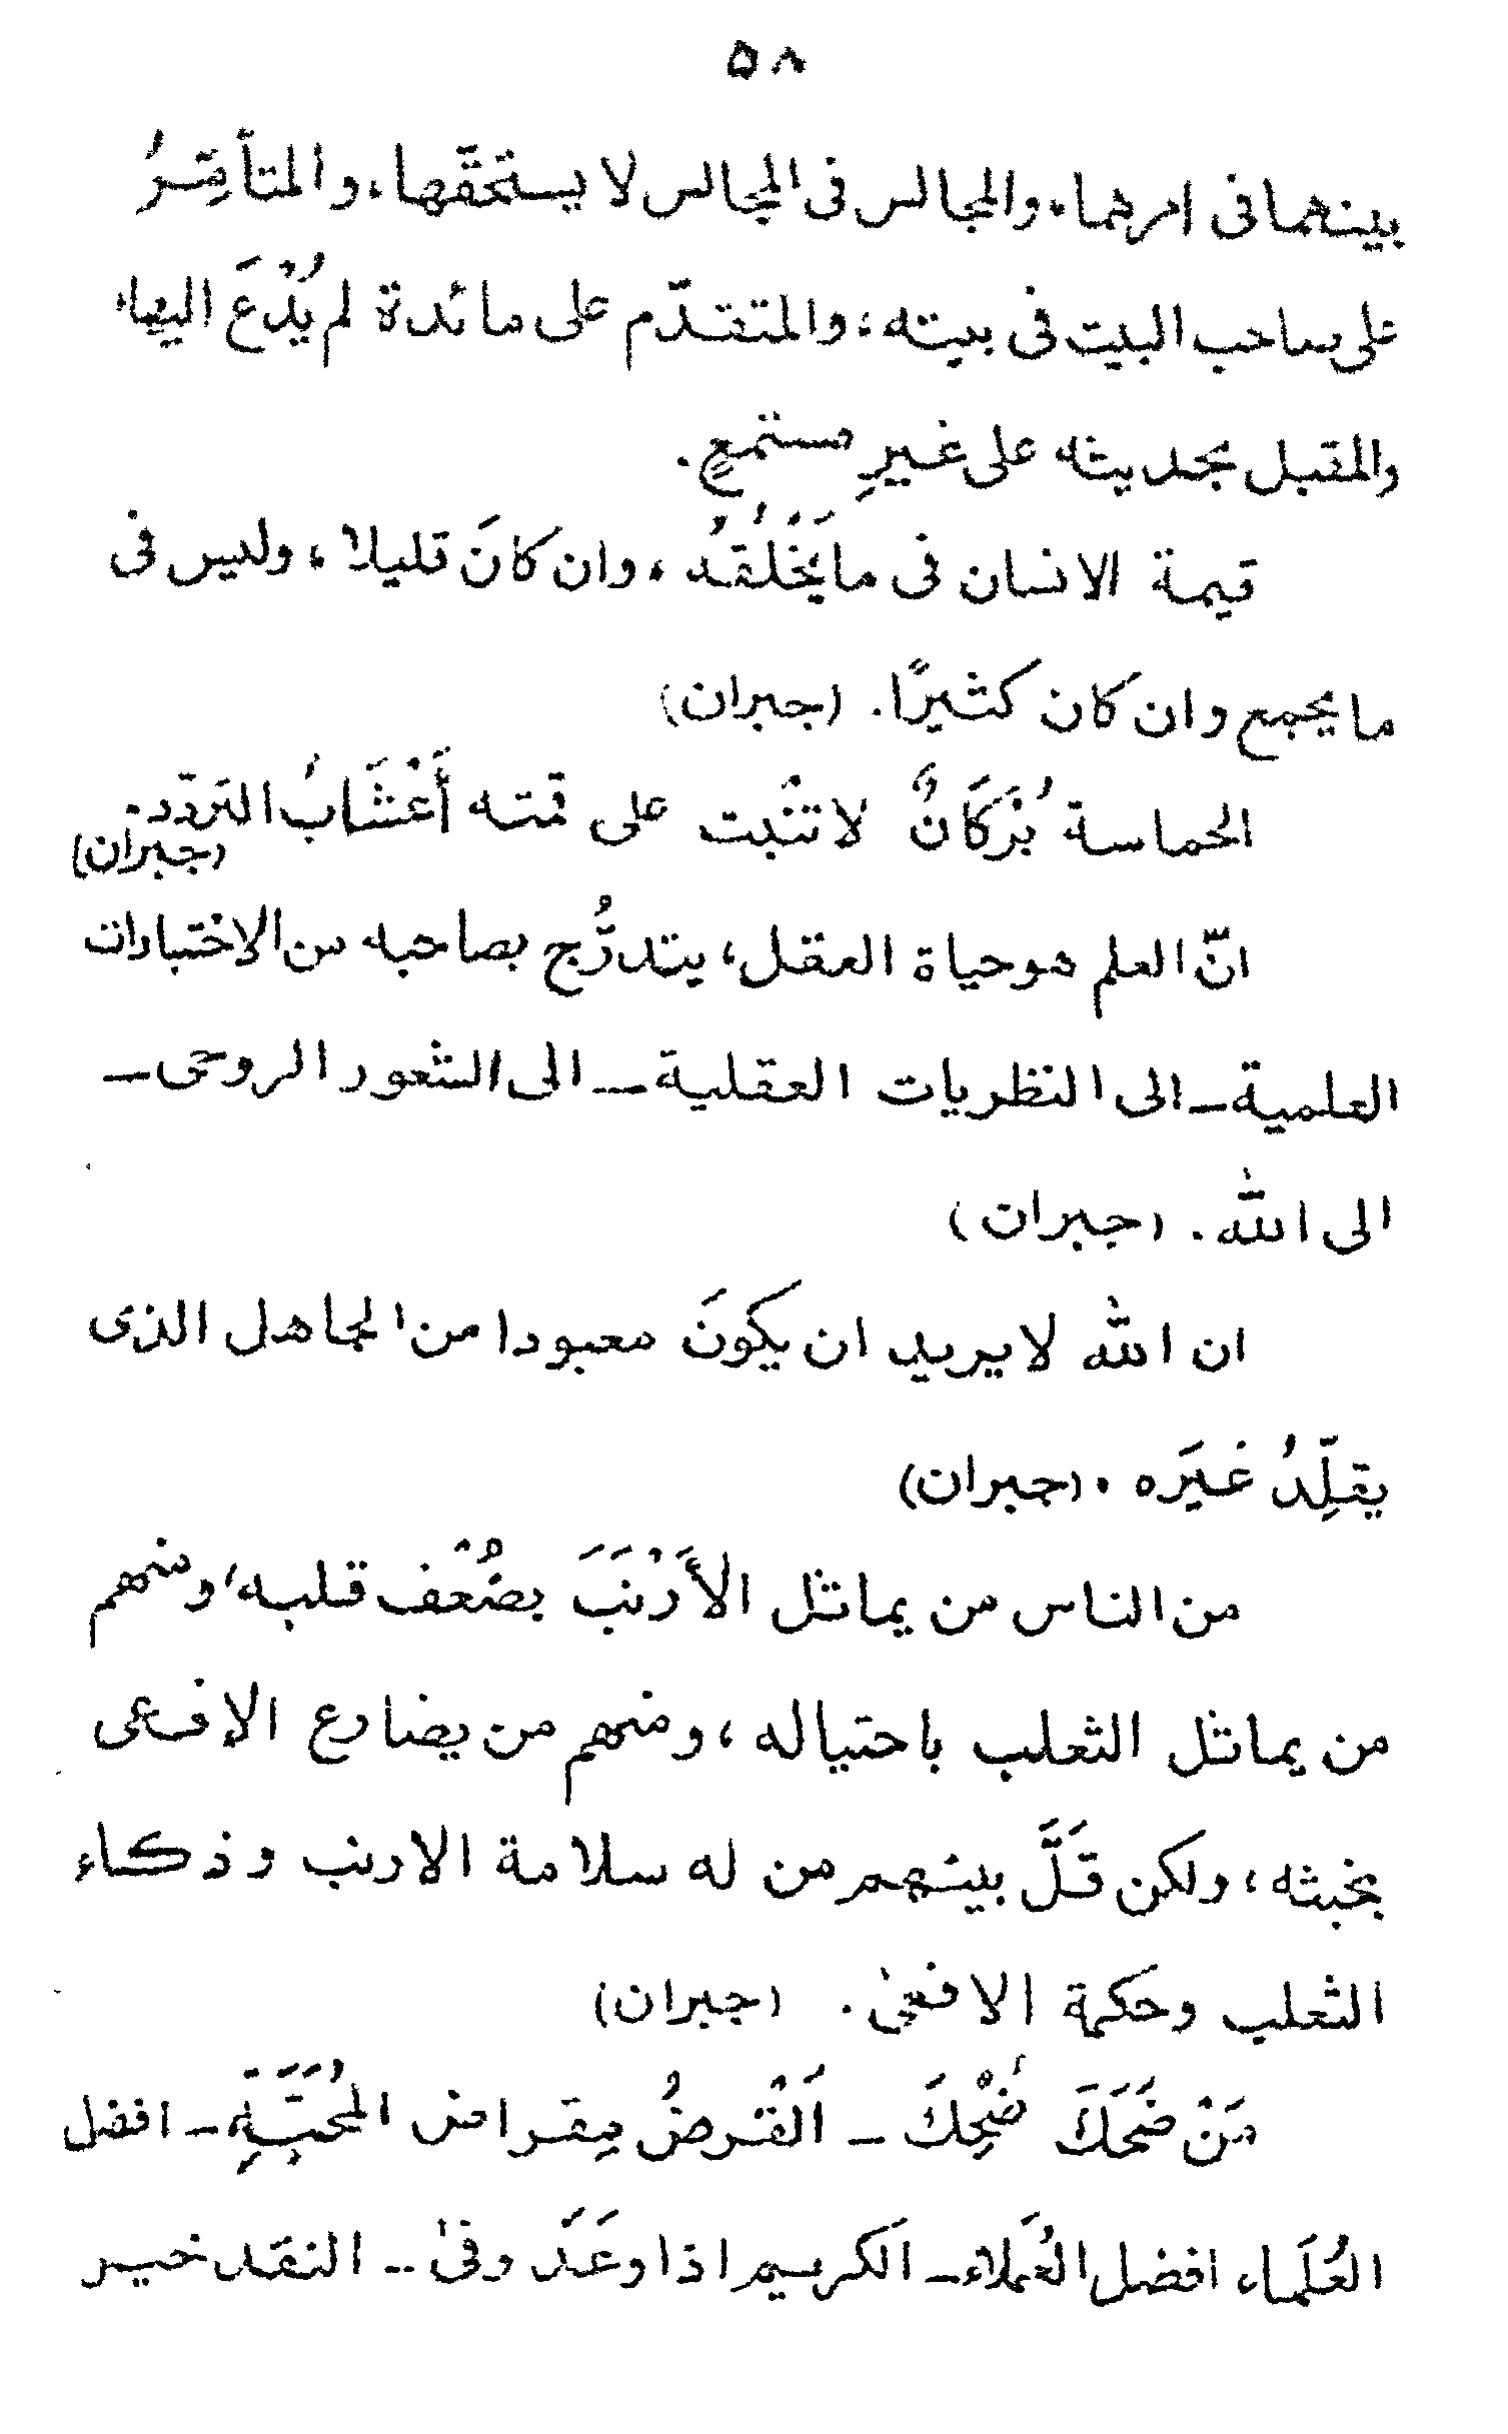 ٥٨
بينهما فى امرهما، والمجالس فى المجالس لا يستحقّها، والمتأمِّرُ
على صاحب البيت فى بيته، والمتقدّم على مائدة لم يُدْعَ اليها،
والمقبل بحديثه على غيرِ مستمعٍ.
قيمة الانسان فى ما يَخْلُقُه، وان كانَ قليلا، وليس فى
ما يجمع وان كان كثيرًا. (جبران)
الحماسة بُرْكَانٌ لا تنْبت على قمته أَعْشَابُ التردّد.
(جبران)
انّ العلم هو حياة العقل، يتدرُّج بصاحبه من الاختبارات
العلمية – الى النظريات العقلية – الى الشعور الروحى –
الى الله. (جبران)
ان الله لا يريد ان يكونَ معبودا من الجاهل الذى
يقلِّدُ غيَره. (جبران)
من الناس من يماثل الأَرْنَبَ بضُعْف قلبه، ومنهم
من يماثل الثعلب باحتياله، ومنهم من يضارع الإفعى
بخبثه، ولكن قَلَّ بينهم من له سلامة الارنب وذكاء
الثعلب وحكمة الافعى. (جبران)
مَنْ ضَحَكَ ضُحِكَ – اَلْقرضُ مِقراض المُحَبَّةِ – افضل
العُلَماء افضل العُمَلاء – اَلكريم اذا وعَدَ وفىٰ – النقد خير